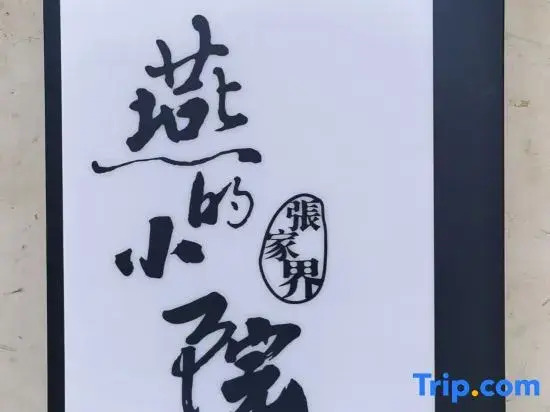 燕的小院
張家界
Trip.com